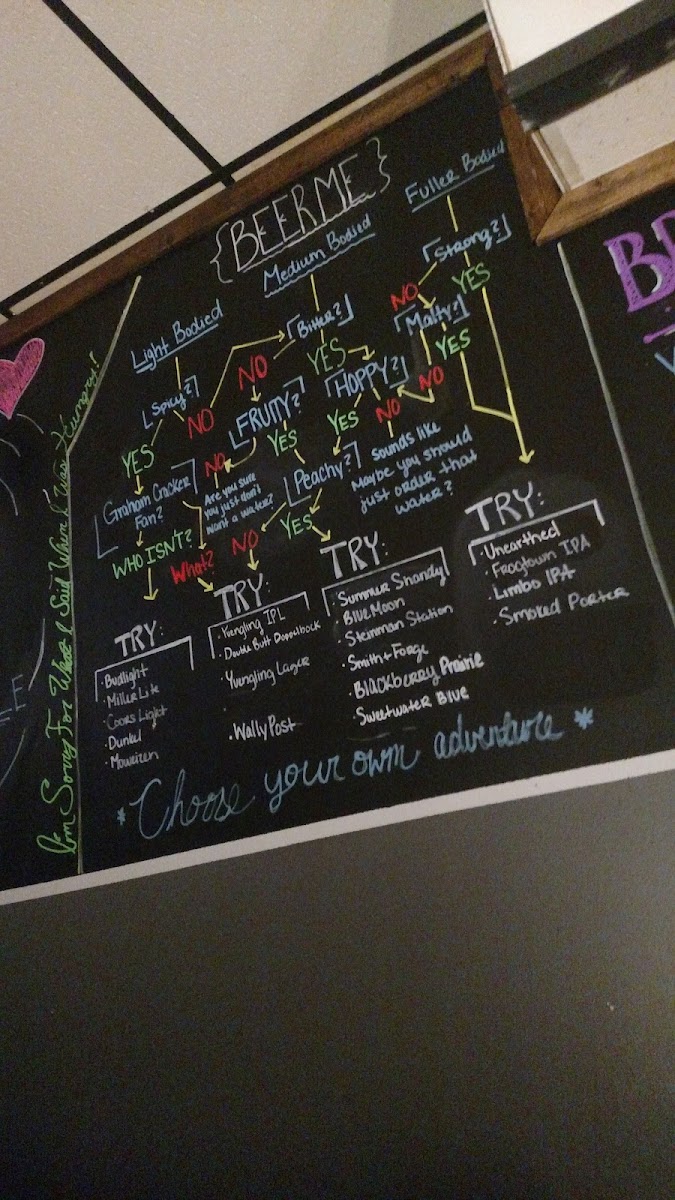 {BEER ME}
Light Bodied
Spicy?
YES
NO
Graham Cracker
Fan?
WHO ISN'T?
What?
Medium Bodied
Bitter?
NO
YES
FRUITY?
NO
YES
Are you sure
you just don't
want a water?
HOPPY?
YES
NO
Peachy?
NO
YES
Sounds like
Maybe you should
just order that
water?
Fuller Bodied
Strong?
NO
YES
Malty?
YES
NO
TRY:
Budlight
· Miller Lite
· Coors Light
· Dunkel
TRY:
· Yuengling IPL
· Double Butt Doppelbock
· Yuengling Lager
· Wally Post
TRY:
· Summer Shandy
· Blue Moon
· Steinman Station
· Smith + Forge
· Blackberry Prairie
· Sweetwater Blue
TRY:
· Unearthed
· Frogtown IPA
· Limbo IPA
· Smoked Porter
* Choose your own adventure *
I'm Sorry For What I Said When I Was Hungry!